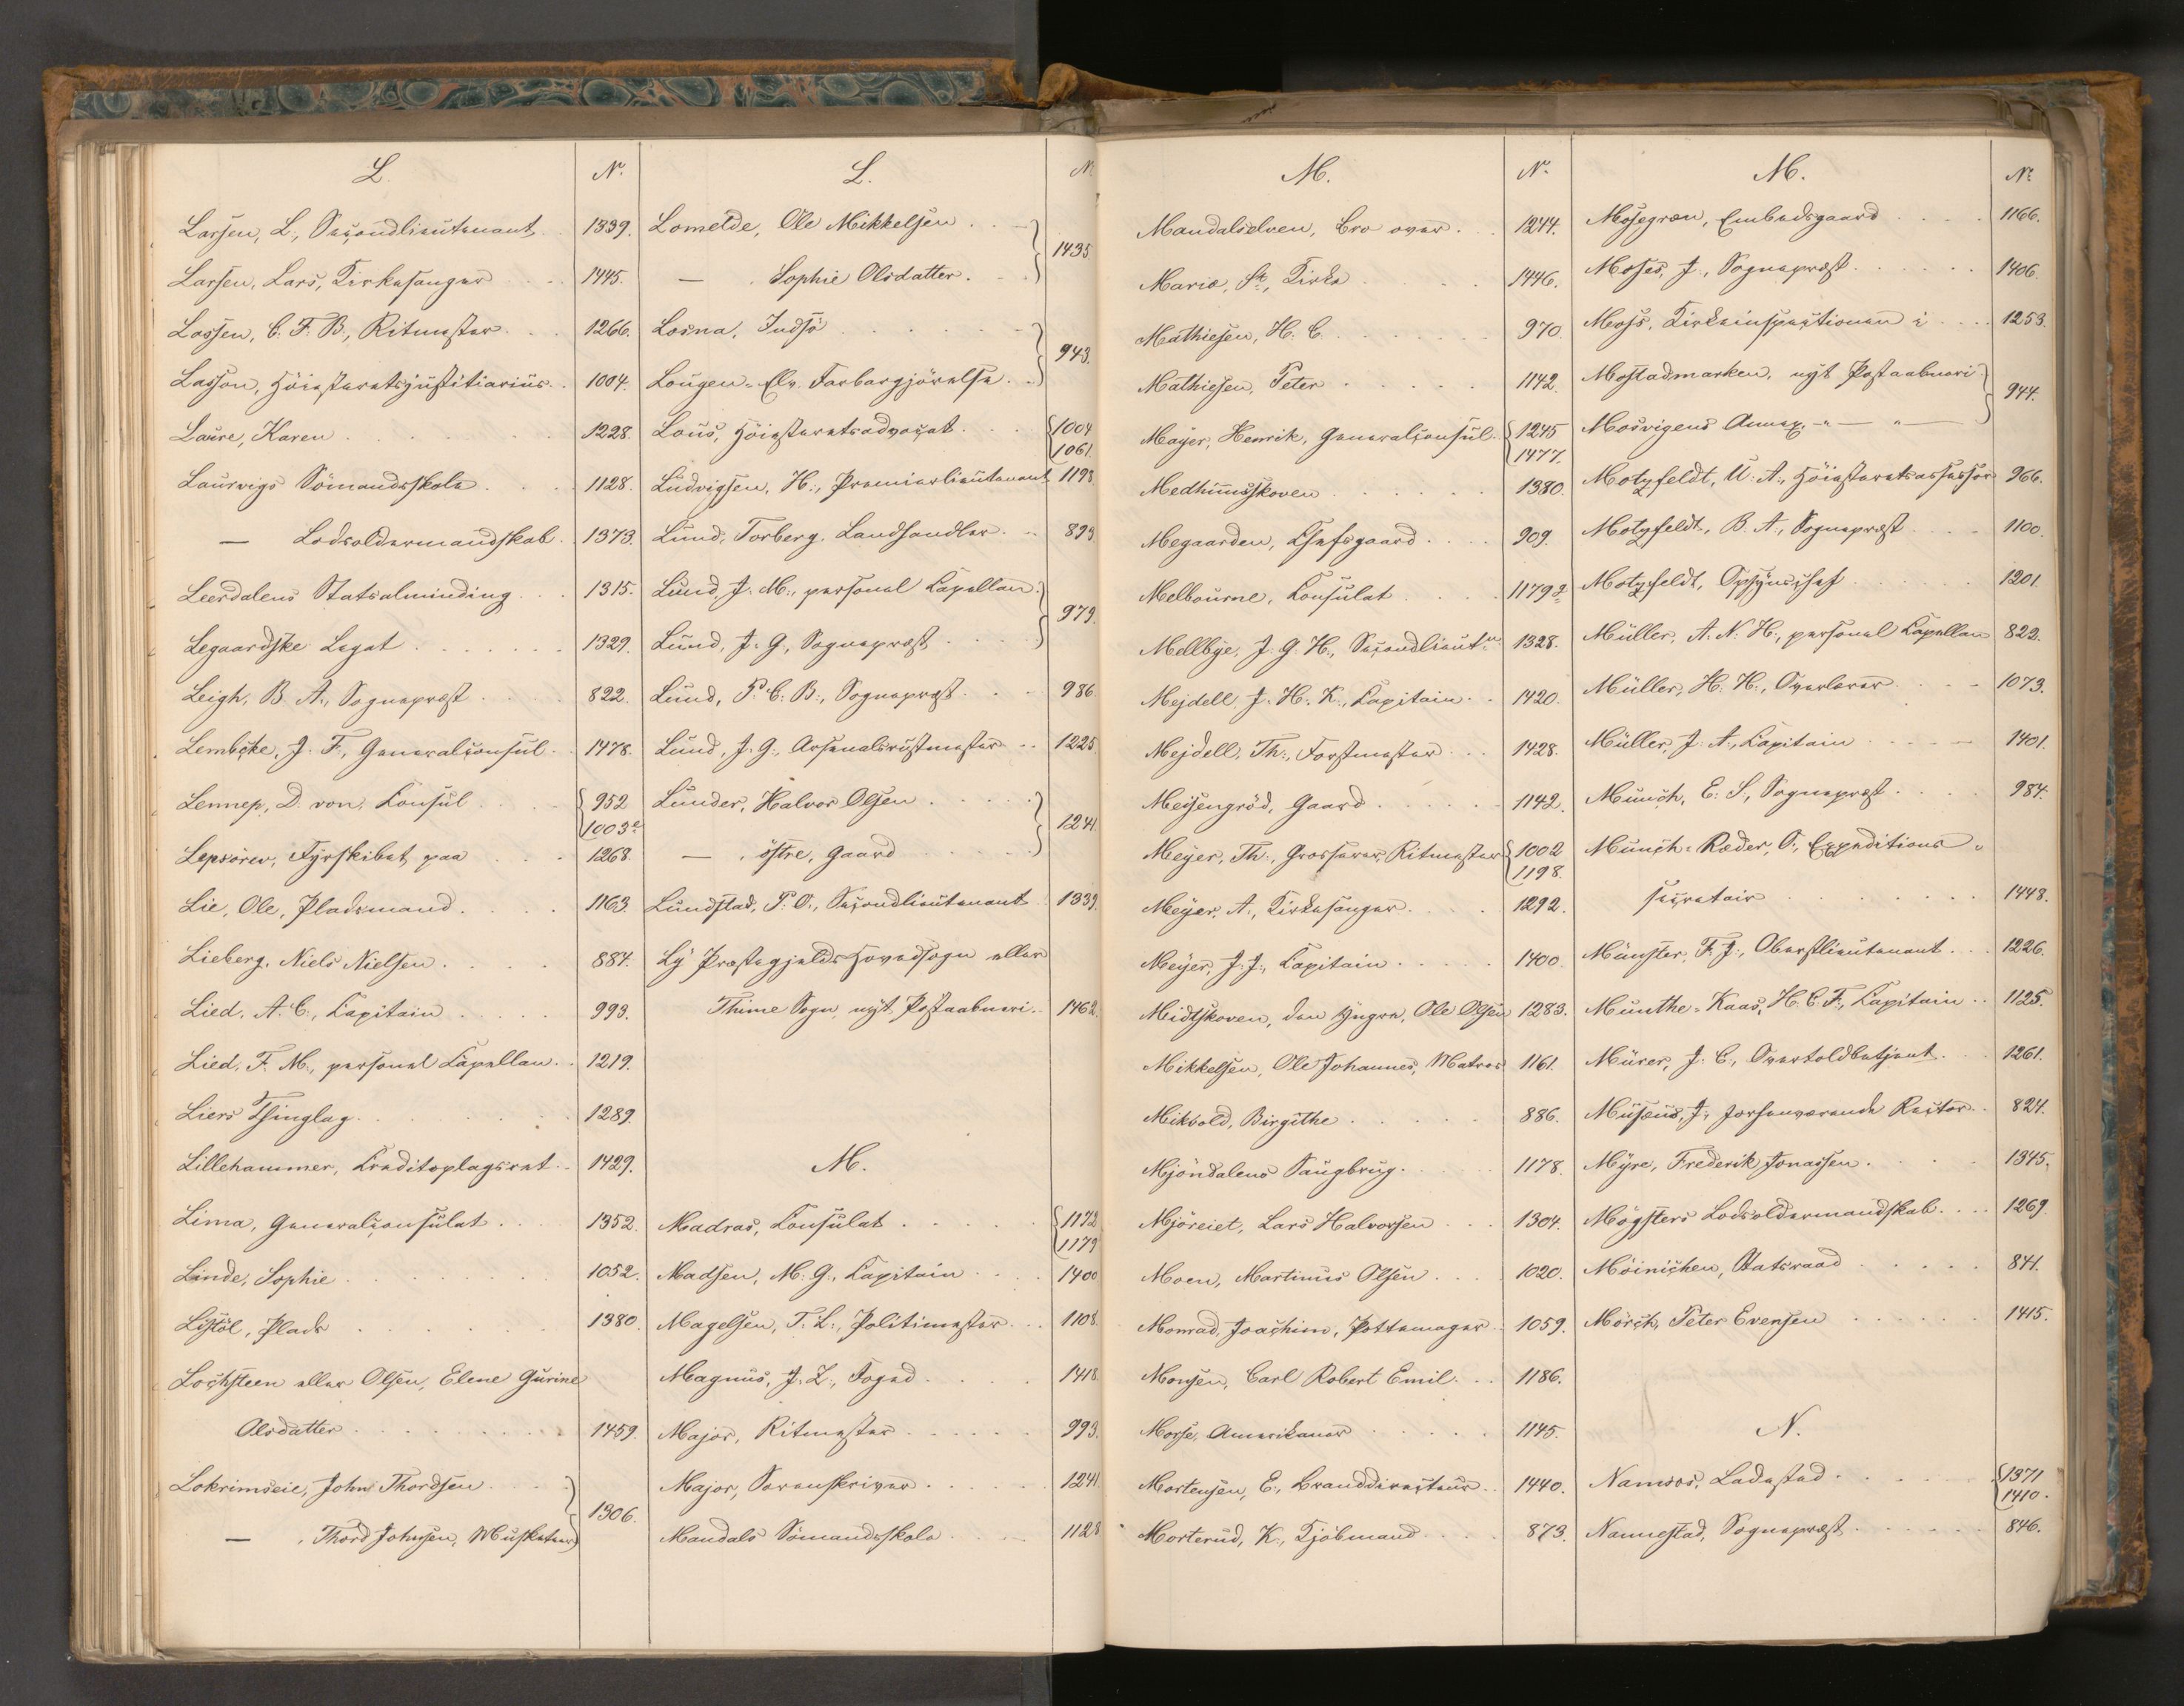 L.
Nr.
Larsen, L., Secondlieutenant . 1339.
Larsen, Lars, Kirkesanger . . 1445.
Lassen, C. F. B., Ritmester . . 1266.
Lasson, Höiesteretsjustitiarius . . 1004.
Laure, Karen . . . 1228.
Laurvigs Sömandsskole . . . 1128.
— Lodsoldermandskab . 1373.
Leerdalens Statsalminding . . 1315.
Legaardske Legat . . . 1329.
Leigh, B. A., Sognepræst . . . 822.
Lembcke, J. F., Generalconsul . . 1478.
Lennep, D. von, Konsul . . . 952
1003e
Lepsörev, Fyrskibet paa . . . 1268.
Lie, Ole, Pladsmand . . . 1163.
Lieberg, Niels Nielsen . . . 884.
Lied, A. C., Kapitain . . . 993.
Lied, F. M., personel Kapellan . . 1219.
Liers Thinglag . . . 1289.
Lillehammer, Kreditoplagsret . . 1429.
Lima, Generalconsulat . . . 1352.
Linde, Sophie . . . 1052.
Listöl, Plads . . . 1380.
Lochsteen eller Olsen, Elene Gurine
Olsdatter . . . 1459.
Lokrimseie, John Thordsen . . .
1306.
— , Thord Johnsen, Musketeer
L.
Nr.
Lomelde, Ole Mikkelsen . . .
1435.
— . Sophie Olsdatter . . .
Losna, Indsö . . .
943.
Lougen-Elv. Farbargjörelse . .
Lous, Höiesteretsadvocat . . . 1004
1061.
Ludvigsen, H., Premierlieutenant 1198.
Lund, Torberg, Landhandler . . 899.
Lund, J. M., personel Kapellan
979.
Lund, J. G., Sognepræst . . .
Lund, P. C. B., Sognepræst . . . 986.
Lund, J. G., Arsenalsrustmester . . 1225.
Lunder, Halvor Olsen . . .
1241.
— , östre, Gaard . . .
Lundstad, P. O., Secondlieutenant . 1339.
Ly Præstegjelds Hovedsogn eller
Thime Sogn, nyt Postaabneri . . 1462.
M.
Madras, Konsulat . . . 1172
1179
Madsen, M. G., Kapitain . . . 1400
Magelsen, T. L., Politimester . . . 1108.
Magnus, J. Z., Foged . . . 1418.
Major, Ritmester . . . 993.
Major, Sorenskriver . . . 1241.
Mandals Sömandsskole . . . 1128
M.
Nr.
Mandalselven, Bro over . . . 1244.
Mariæ, St., Kirke . . . 1446.
Mathiesen, H. C. . . . 970.
Mathiesen, Peter . . . 1142.
Mayer, Henrik, Generalconsul . 1245
1477.
Medhuusskoven . . . 1380.
Megaarden, Chefsgaard . . . 909.
Melbourne, Konsulat . . . 1179 2
Mellbye, J. G. H., Secondlieutn. 1328.
Mejdell, J. H. K., Kapitain . . 1420.
Mejdell, Th., Forstmester . . . 1428.
Meisengröd, Gaard . . . 1142.
Meyer, Th., Grosserer, Ritmester 1002
1198.
Meyer, A., Kirkesanger . . . 1292.
Meyer, J. J., Kapitain . . . 1400.
Midtskoven, den yngre, Ole Olsen 1283.
Mikkelsen, Ole Johannes, Matros 1161.
Mikvold, Birgithe . . . 886.
Mjöndalens Saugbrug . . . 1178.
Mjöreiet, Lars Halvorsen . . . 1304.
Moen, Martinus Olsen . . . 1020.
Monrad, Joachim, Pottemager . 1059.
Monsen, Carl Robert Emil . . . 1186.
Morse, Amerikaner . . . 1145.
Mortensen, E., Branddirecteur . . 1440.
Morterud, K., Kjöbmand . . . 873.
M.
Nr.
Mosegren, Embedsgaard . . . 1166.
Moses, J., Sognepræst . . . 1406.
Moss, Kirkeinspectionen i . . . 1253.
Mostadmarken, nyt Postaabneri
944.
Mosvigens Annex, - " — " —
Motzfeldt, U. A., Höiesteretsassessor 966.
Motzfeldt, B. A., Sognepræst . . . 1100.
Motzfeldt, Opsynschef . . . 1201.
Müller, A. N. H., personel Kapellan 822.
Müller, H. H., Overlærer . . . 1073.
Müller, J. A., Kapitain . . . 1401.
Munch, E. S., Sognepræst . . . 984.
Munch-Ræder, O., Expeditions-
secretair . . . 1448.
Münster, F. J., Oberstlieutenant . . . 1226.
Munthe-Kaas, H. C. F., Kapitain . . 1125.
Mürer, J. C., Overtoldbetjent . . . 1261.
Musæus, J., forhenværende Rector . . 824.
Myre, Frederik Jonassen . . . 1345.
Mögsters Lodsoldermandskab . . . 1269.
Möinichen, Statsraad . . . 841.
Mörch, Peter Evensen . . . 1415.
N.
Namsos, Ladested . . . 1371
1410.
Nannestad, Sognepræst . . . 846.